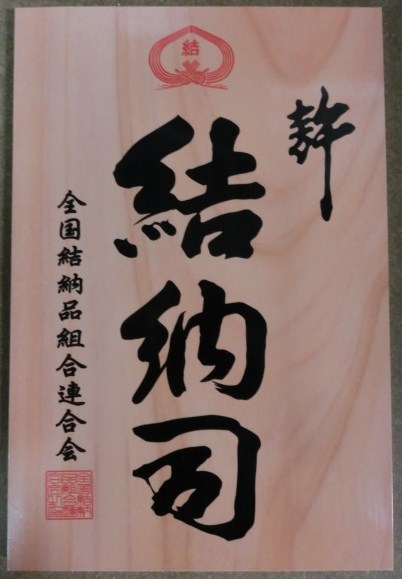 結
結納司
全国結納品組合連合会